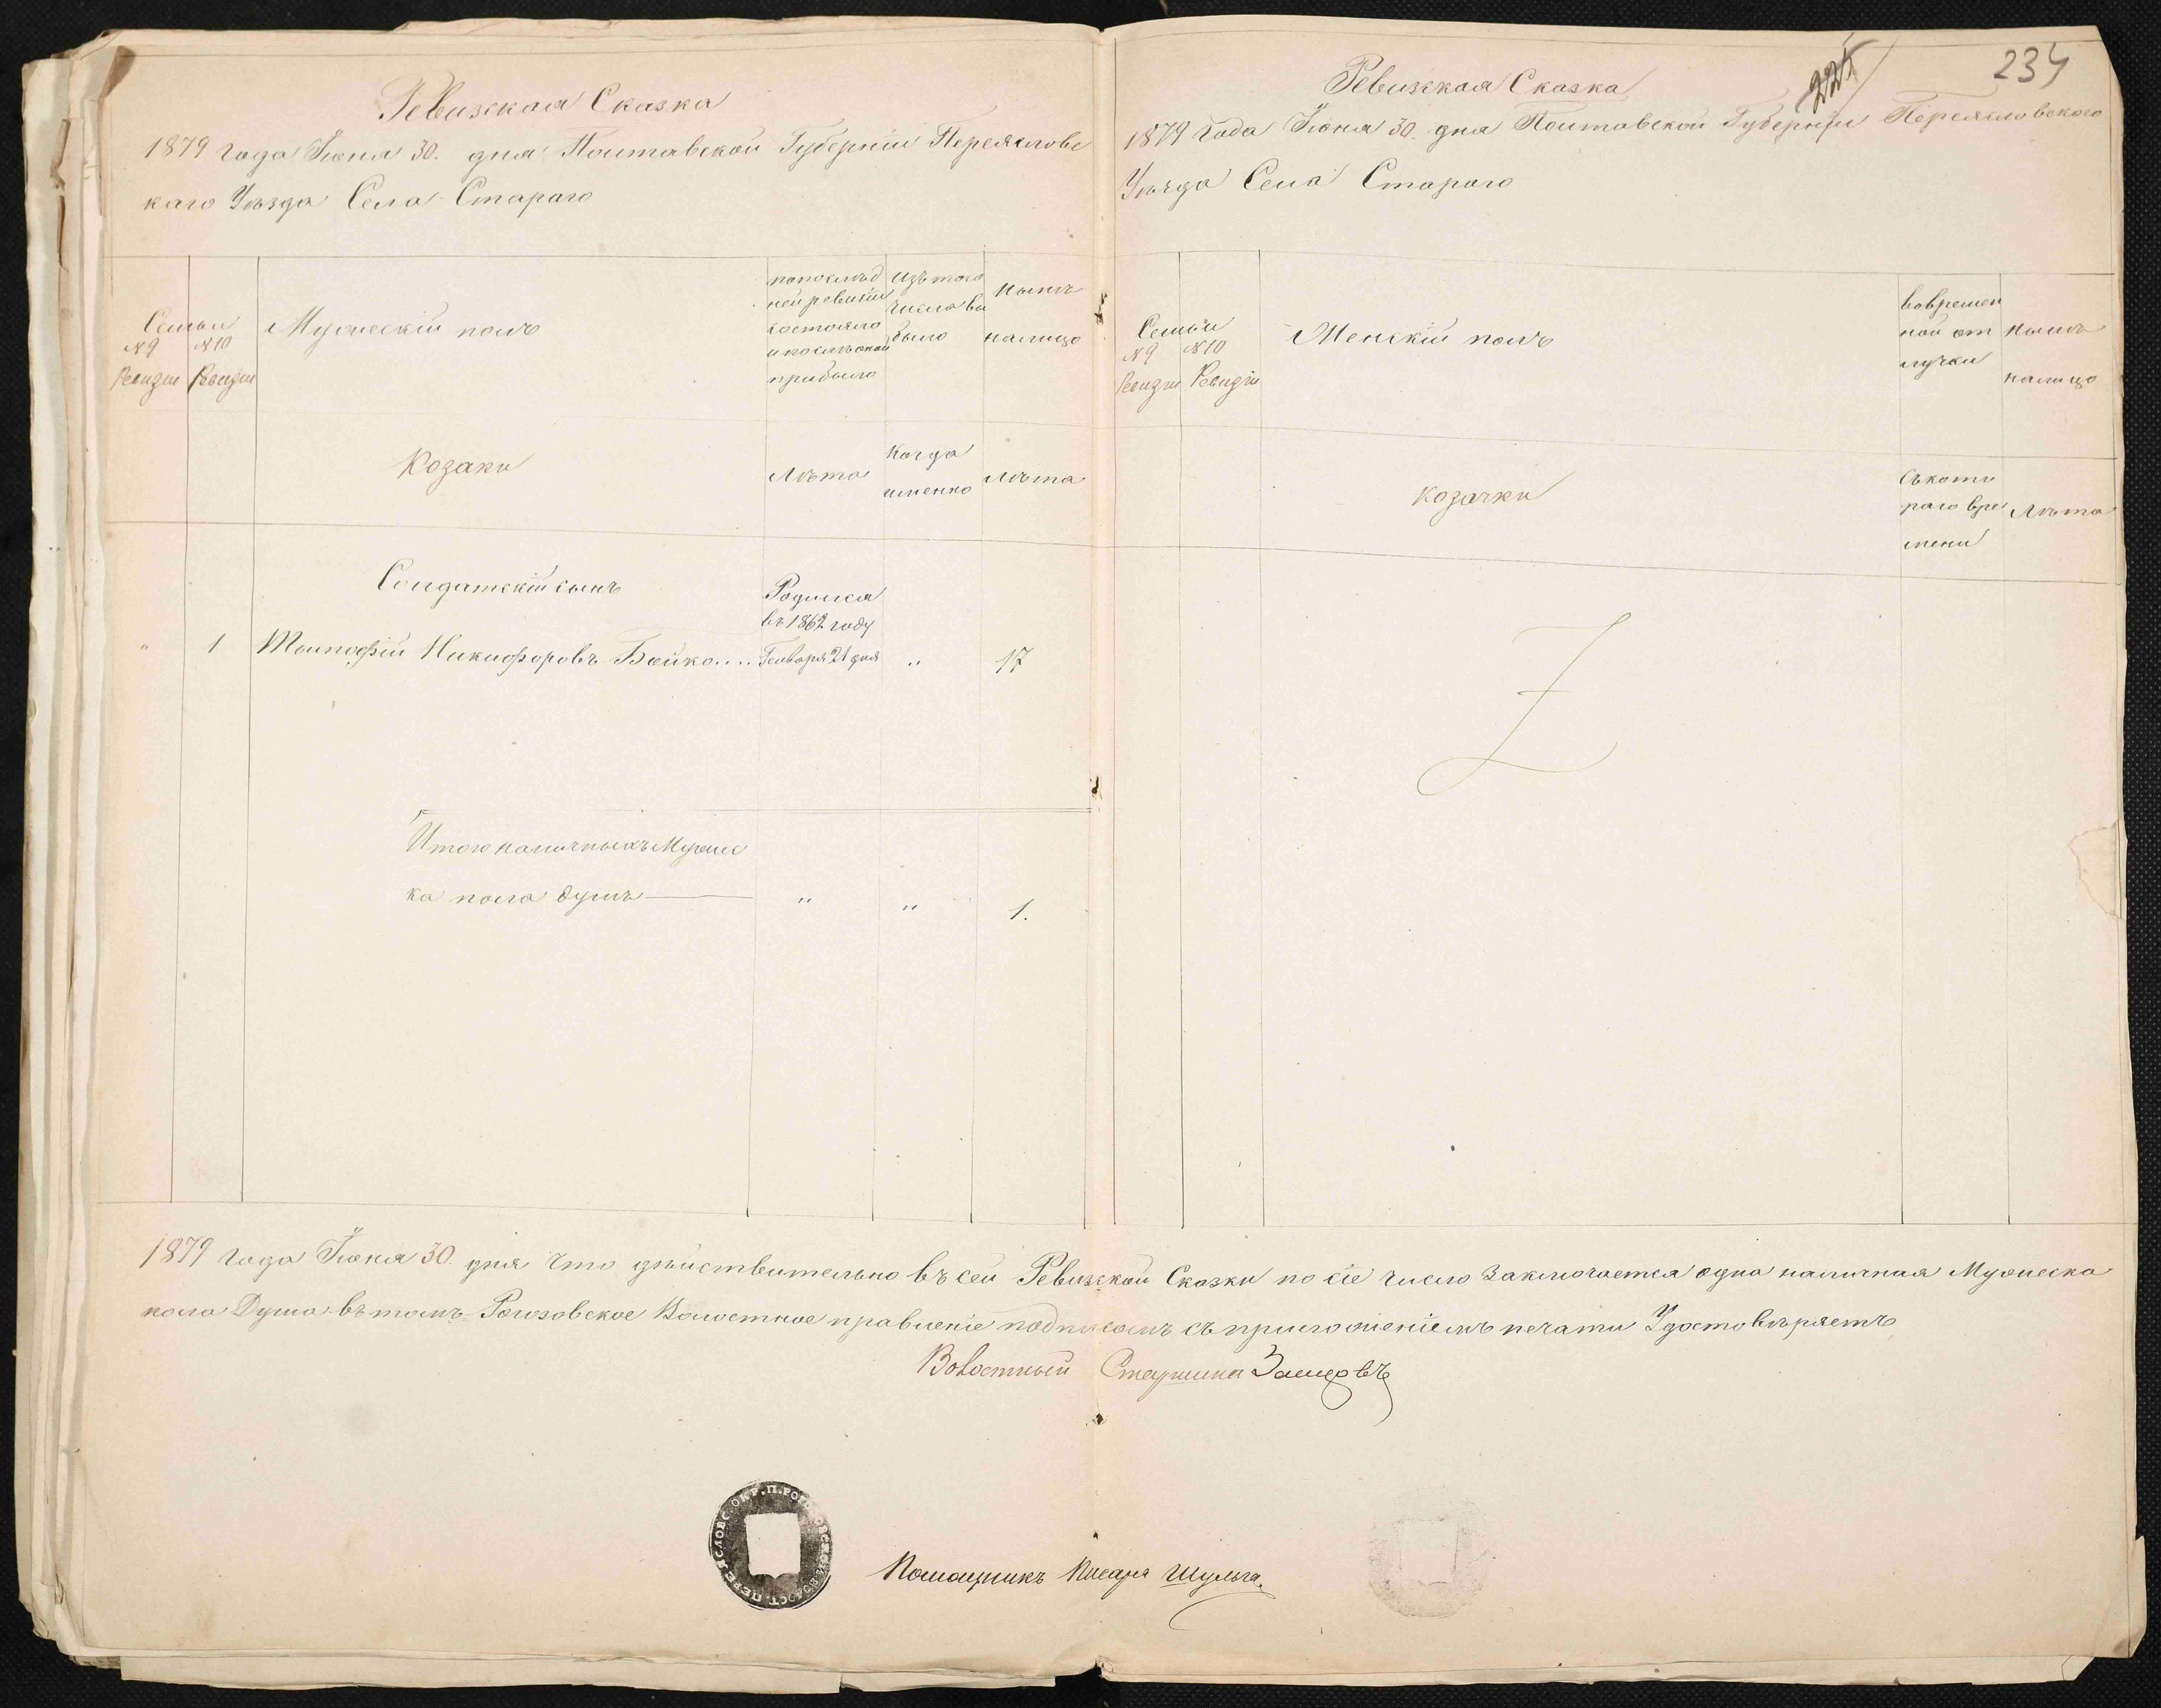 Ревизская Сказка
1879 года Іюня 30. дня Полтавской Губерніи Переяловс
каго Уѣзда Села Стараго
Семьи
№ 9 № 10
Ревизіи Ревизіи
Мужескій полъ
попослѣд
ней ревизіи
состояло
и послѣ оной
прибыло
Изъ того
числа вы
было
Нынѣ
налицо
Козаки
Лѣта
Когда
именно
Лѣта
Солдатскій сынъ
Родился
въ 1862 году
" 1 Никифоровъ Бойко.... Генваря 21 дня " 17
Итого наличныхъ Мужес
ка пола душъ " " 1.
225
234
Ревизская Сказка
1879 Года Іюня 30. дня Полтавской Губерніи Переяловского
Уѣзда Села Стараго
Семьи
№ 9 № 10
Ревизіи Ревизіи
Женскій полъ
вовремен
ной от
лучки
Нынѣ
налицо
козачки
Съкото
раго вре
мени
Лѣта
1879 года Іюня 30. дня Что дѣйствительно въ сей Ревизской Сказки по сіе число Заключается одна наличная Мужеска
пола Душа въ томъ Рогозовское Волостное правленіе подписомъ съ приложеніемъ печати Удостовѣряетъ
Волостный Старшина
ПЕРЕЯСЛОВС. ОКР. П. РОГ ВОЛОСТ.
Помощникъ Писаря Шульга.